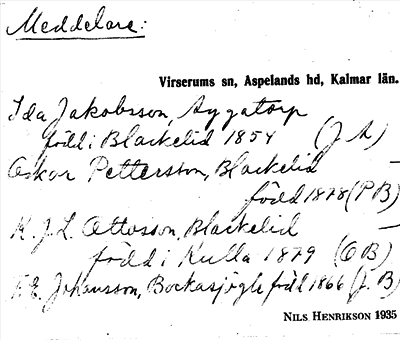 Meddelare:
Virserums sn, Aspelands hd, Kalmar län.
Ida Jakobsson, Aggatorp
född i Blackelid 1854 (J A)
Oskar Pettersson, Blackelid —
född 1878 (P B)
K. J. L. Ottosson, Blackelid —
född i Kulla 1879 (O B)
Johansson, Bockasjögle född 1866 (J. B)
NILS HENRIKSON 1935